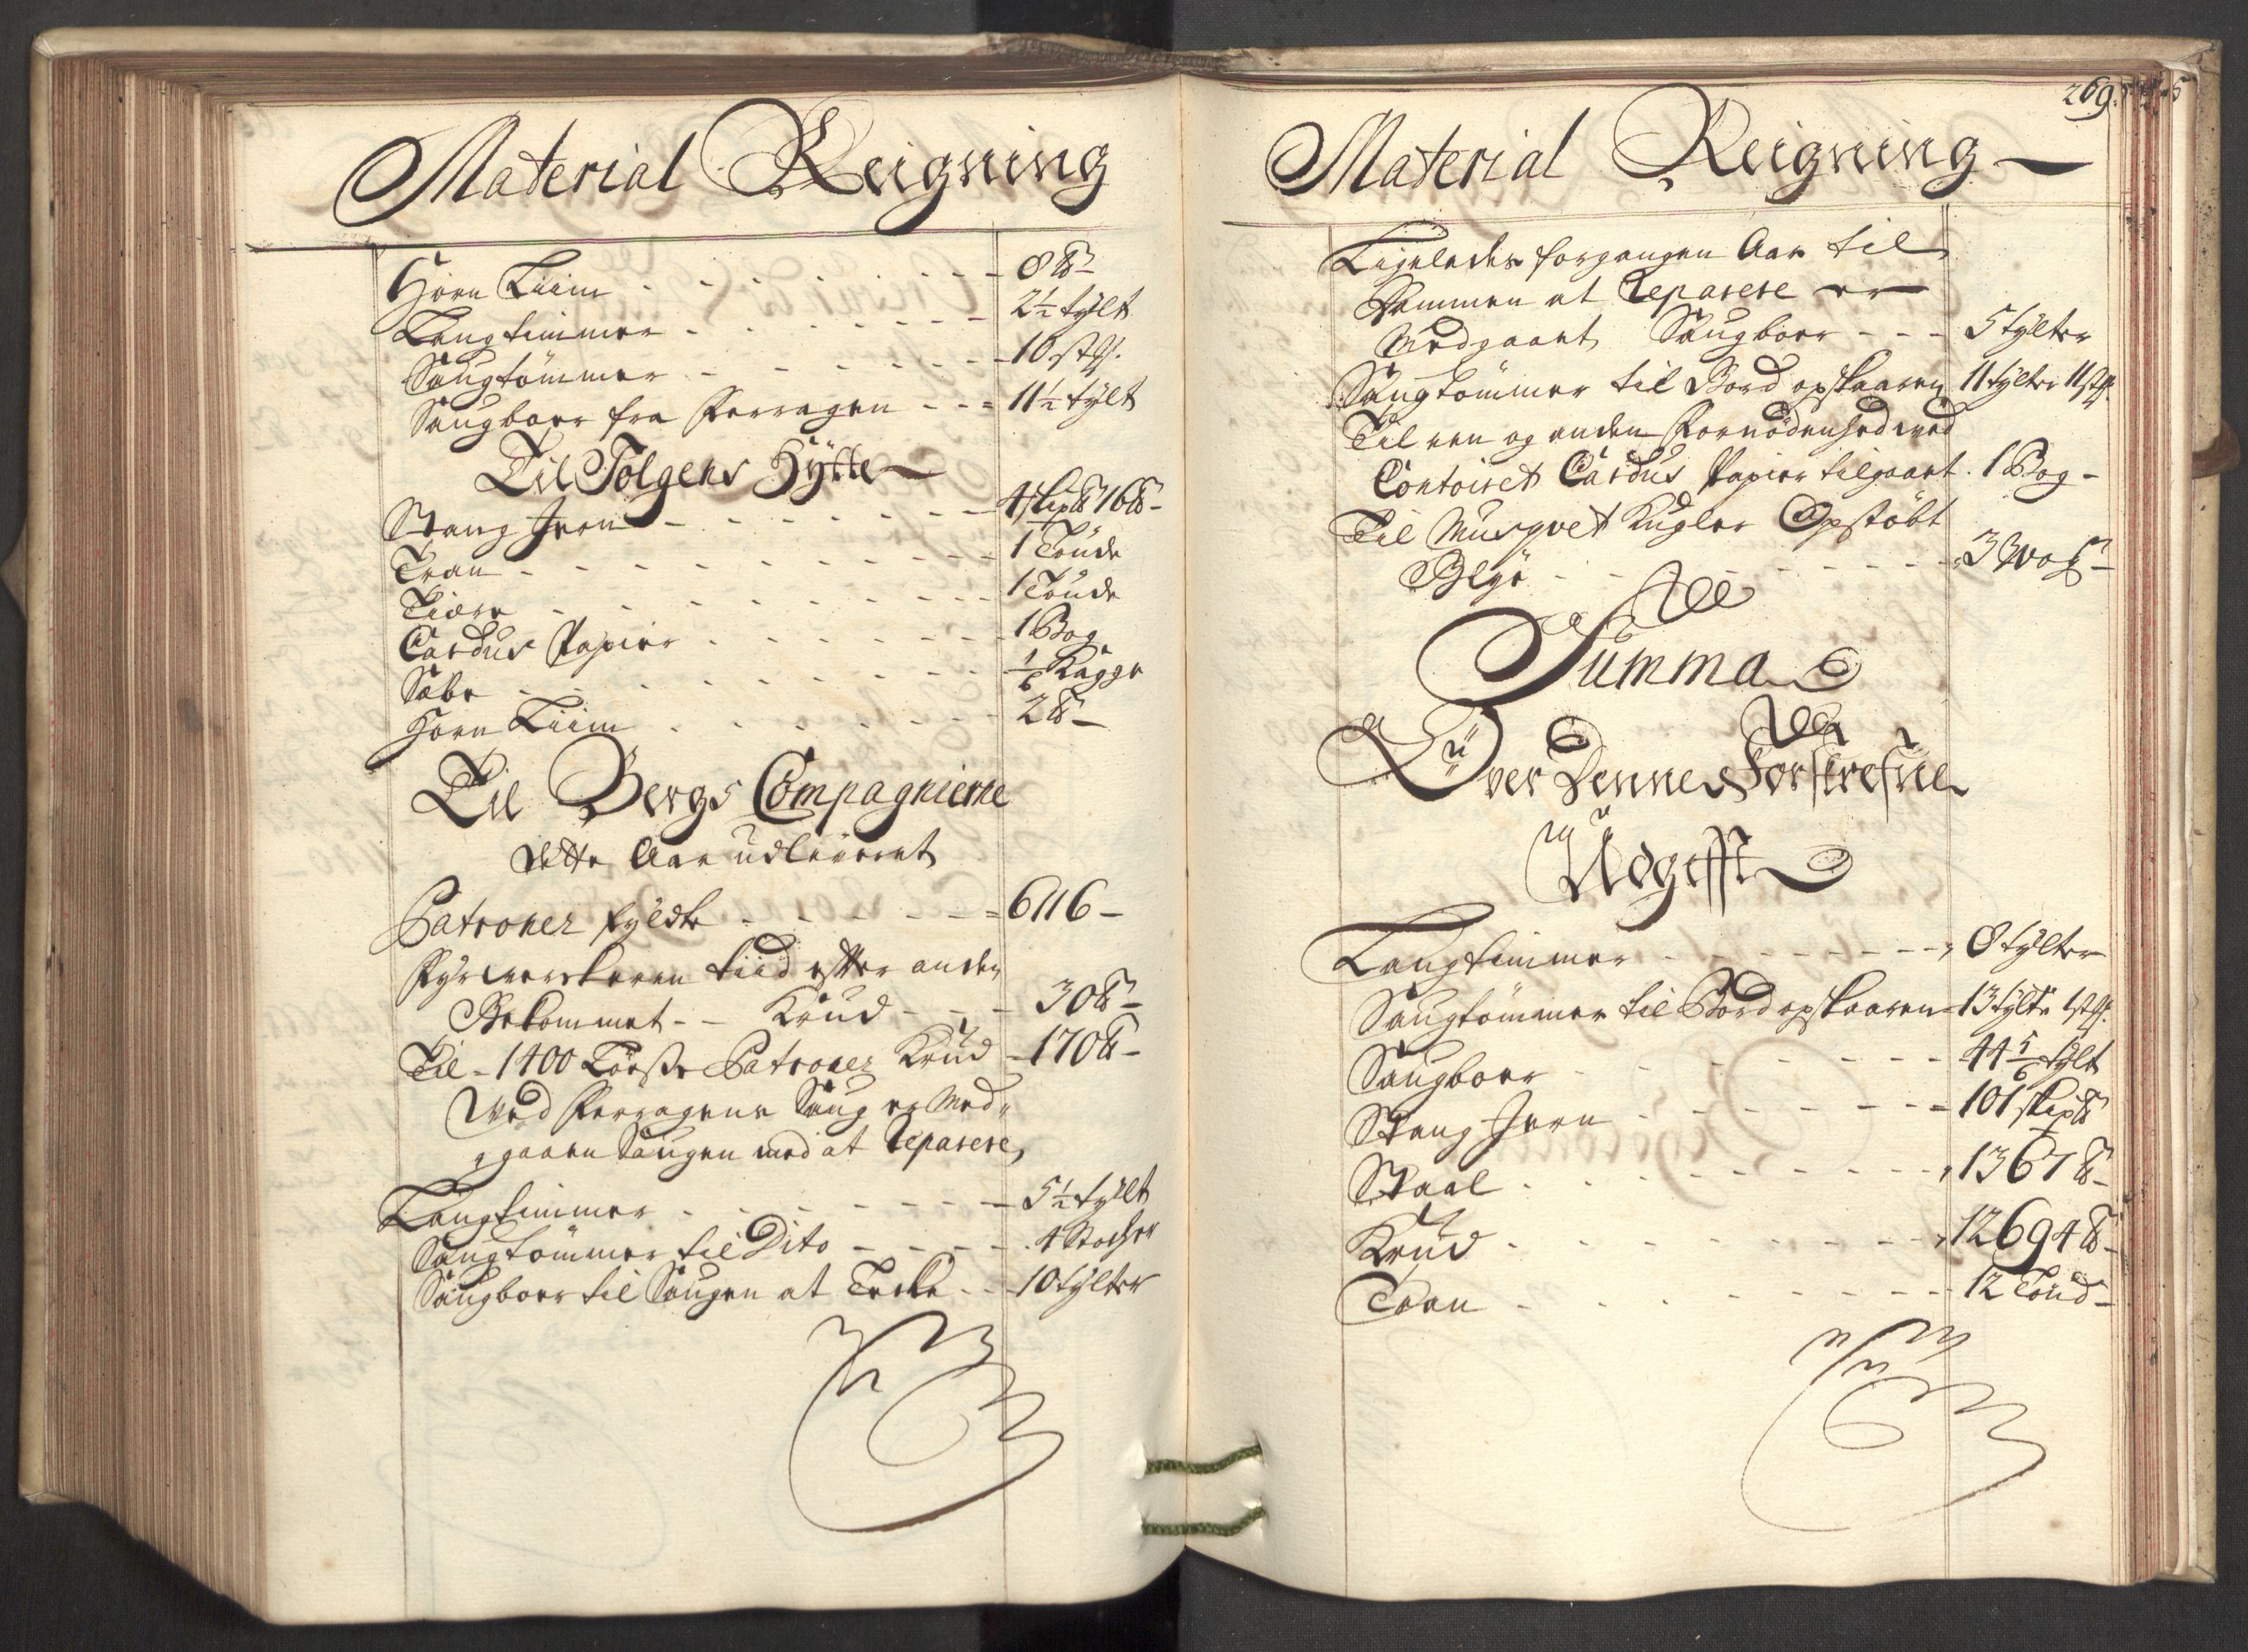 Material Reigning
Horn Liim - - - - - - - 8 ℔
Langtimmer - - - - - - 2½ tylt
Saugtömmer - - - - - - 10 stk.
Saugborr fra Ferragen - - - 11½ tylt
Til Tolgens Hÿtte
Stang Jern - - - - - - 4 skip℔ 16 ℔
Tran - - - - - - - 1 Tönde
Tiære - - - - - - - 1 Tönde
Cardus Papiir - - - - - - 1 Bog
Sæbe - - - - - - - 1/6 Kagge
Horn Liim - - - - - - 2 ℔
Til Bergs Compagnierne
dette Aar udleveret
Patroner fyldte - - - - - = 6116 -
Fyrverkeren tiid efter anden
Bekommet - - Krud - - - 30 ℔
Til - 1400 Törre Patroner Krud - 170 ℔ -
Ved Ferragens Saug er Med-
gaaen Saugen med at Reparere,
Langtimmer - - - - - - 5½ tylt
Saugtömmer til Dito - - - - 4 Stocher
Saugborr til Saugen at Tecke - - 10 tylter
269.
Material Reigning
Ligeledes forgangen Aar til
Dammen at Reparere er
Medgaaet Saugborr - - - 5 tylter
Saugtömmer til Bord opskaaren 11 tylter 11 stk.
Til een og anden Fornödenhed ved
Contoiret Cardus Papiir tilgaaet . 1 Bog -
Til Musqvet Kugler Opstöbt
Blye - - - - - - - 3 Vog
Summa
Over Denne Forskrefne
Udgifft
Langtimmer - - - - - - 8 tylter
Saugtömmer til Bord opskaaren 13 tylte 1 stk.
Saugborr - - - - - - 44 5/6 tylt
Stang Jern - - - - - - 101 skip℔
Staal - - - - - - 1367 ℔ -
Krud - - - - - - 12694 ℔ -
Tran - - - - - - 12 Tönd -